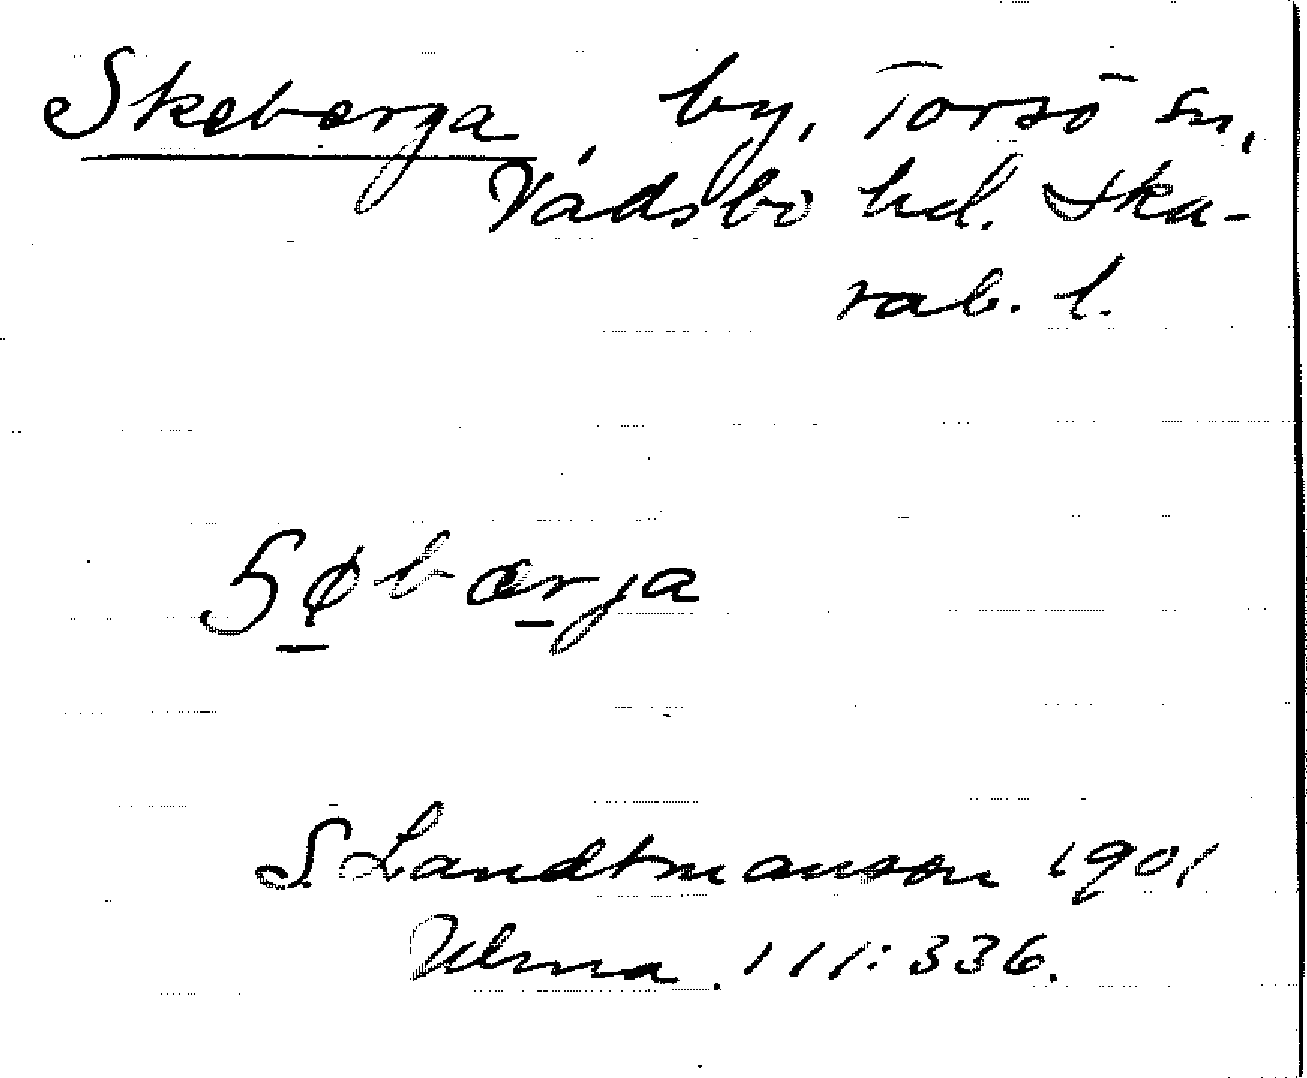 Skeberga by, Torsö sn,
Vadsbo hd. Ska-
rab. l.
S. Landtmanson 1901
Ulma. 111:336.